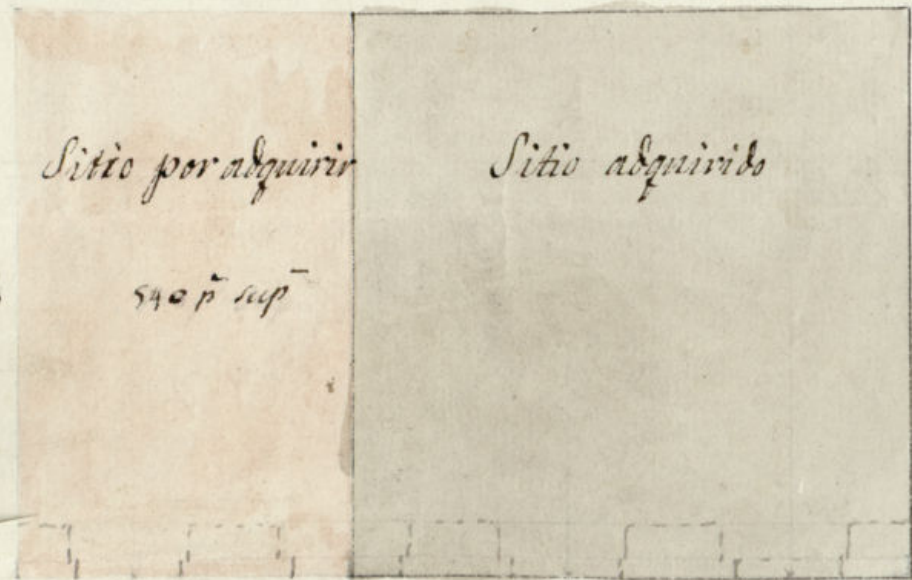 Sitio por adquirir
540 p̃ sup̃
Sitio adquirido